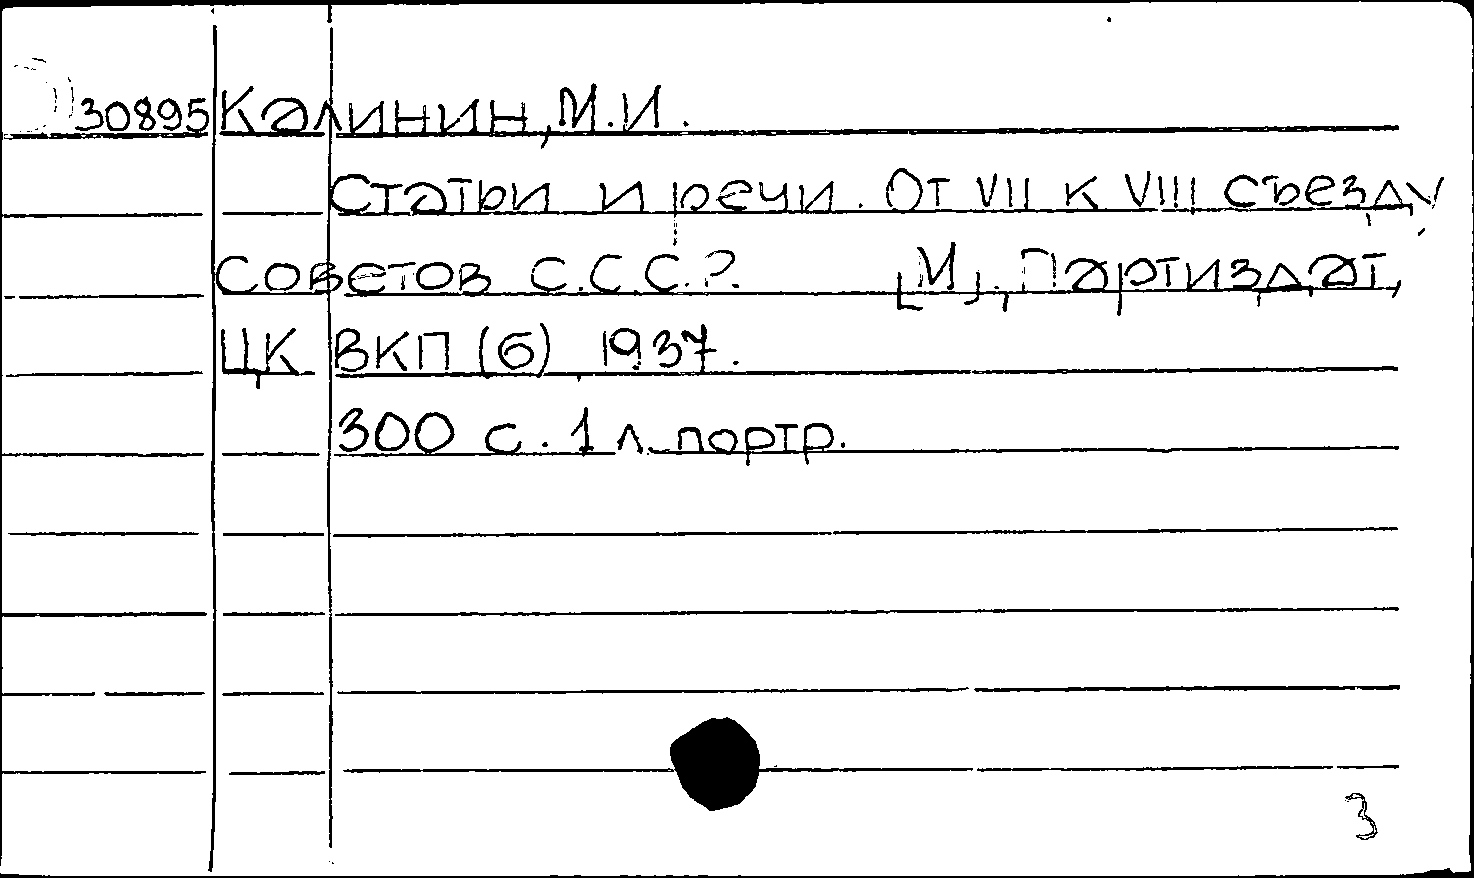 30895 Калинин, М.И.
Статьи и речи. От VII к VIII съезду
Советов С.С.С.Р. [М.], Партиздат,
ЦК ВКП(б), 1937.
300 с. 1 л. портр.
3